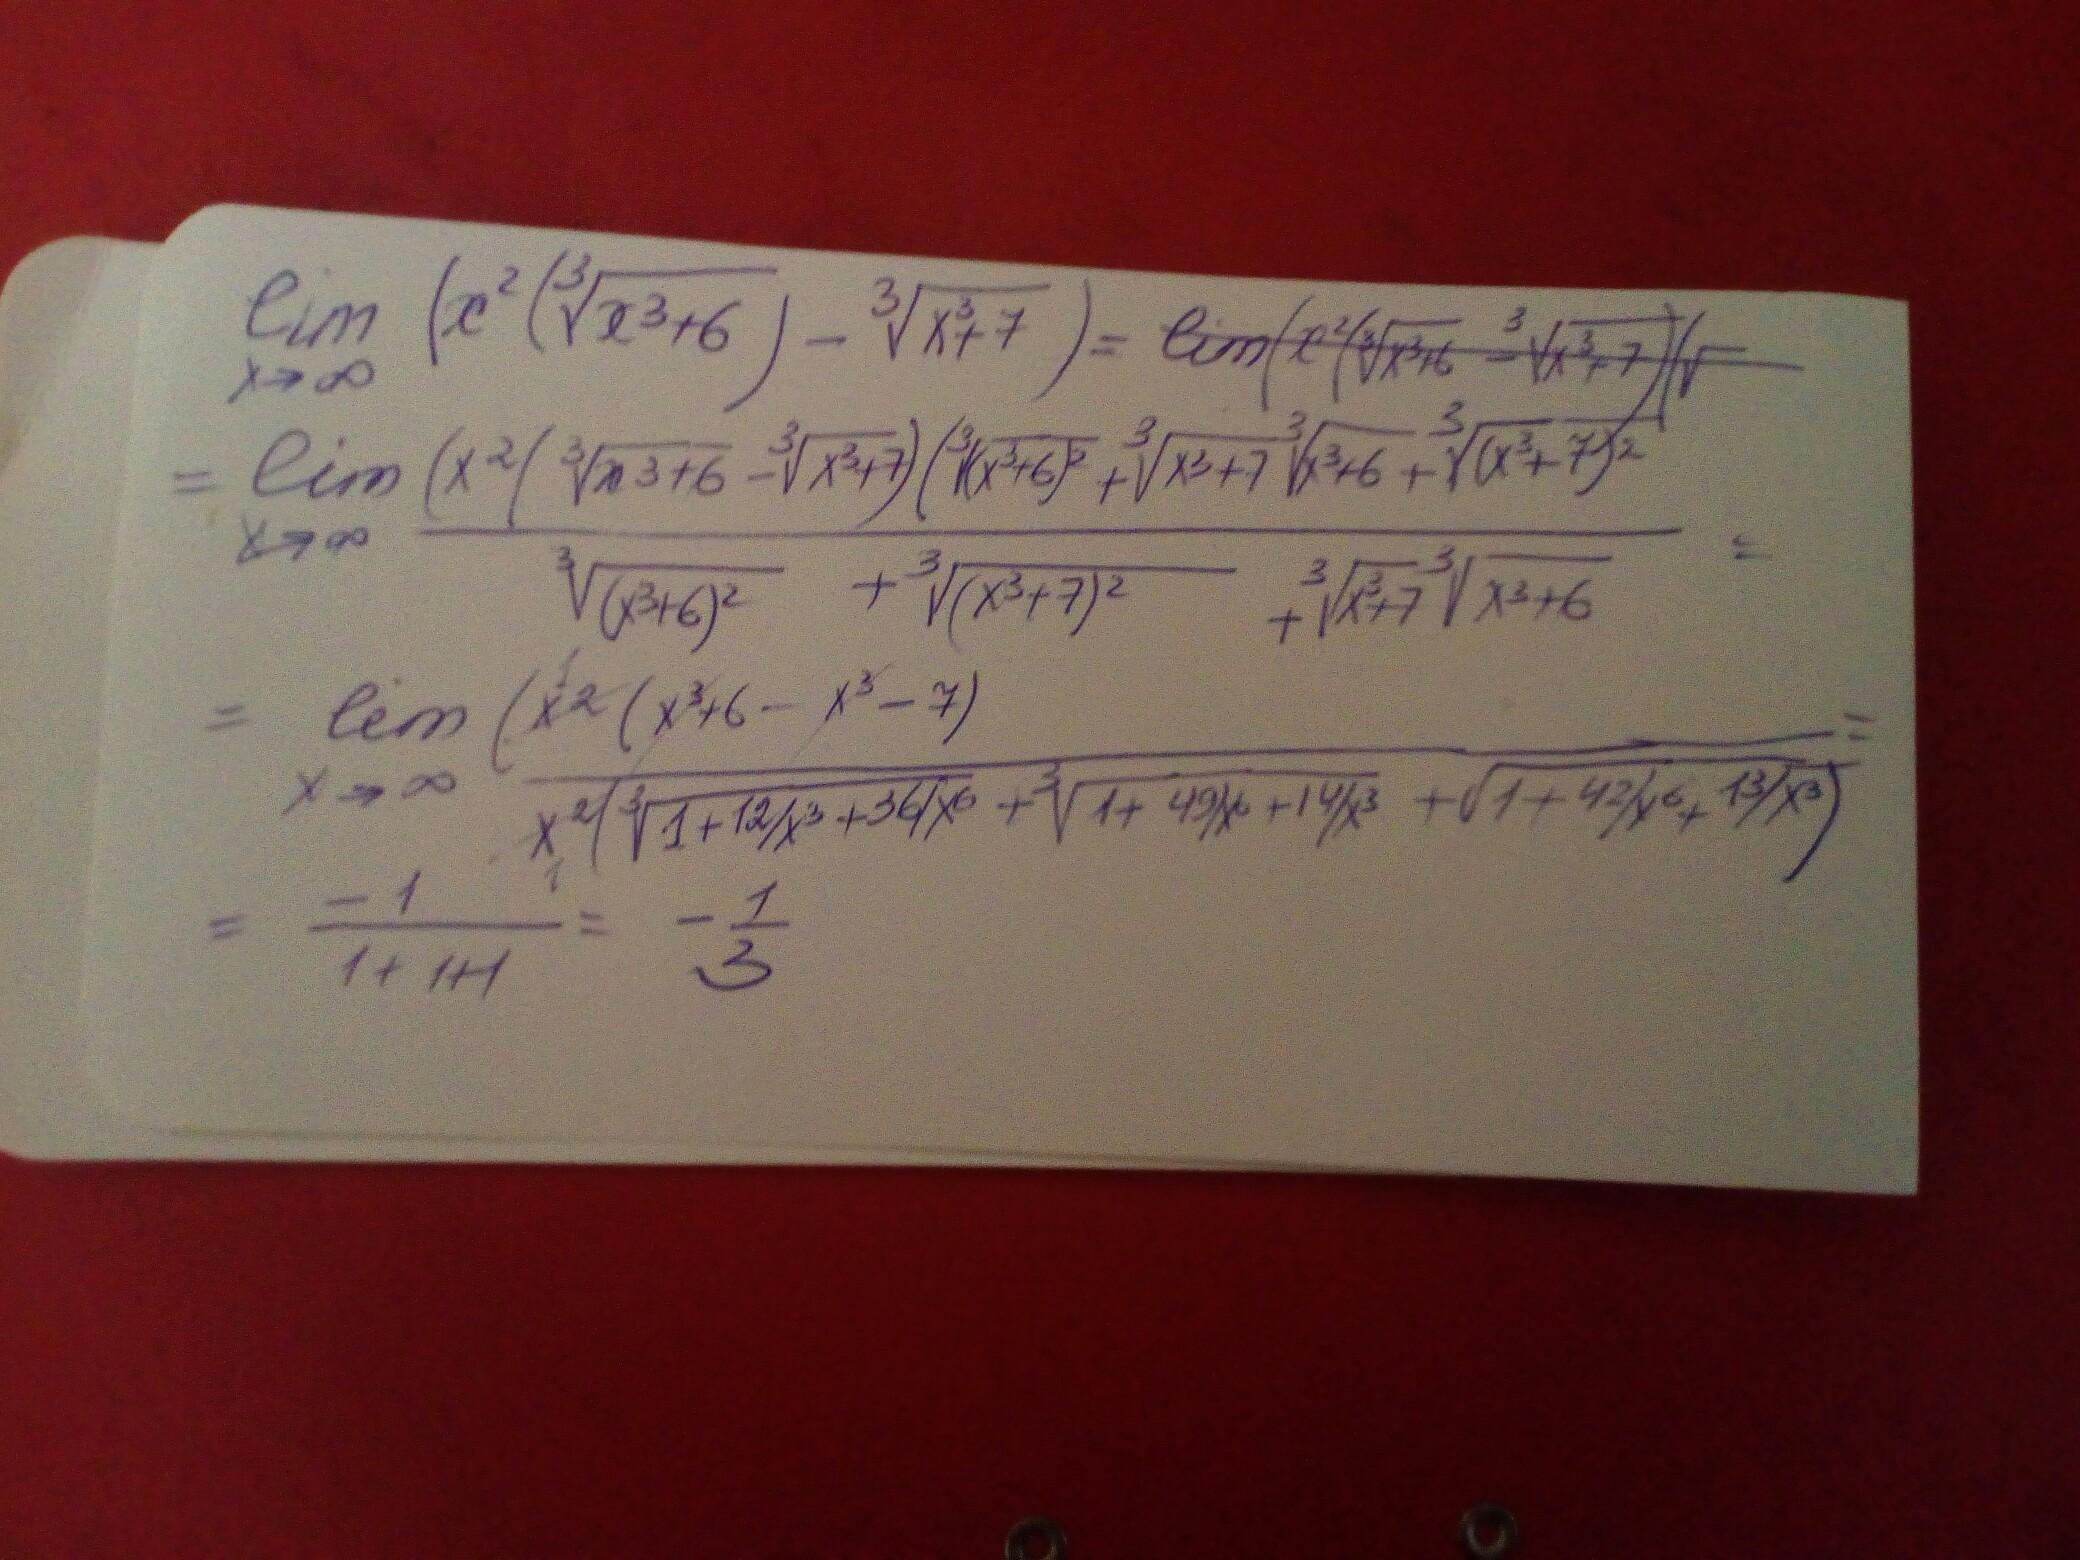 lim x→∞ (x²(∛(x³+6)) − ∛(x³+7)) = lim(x²(∛(x³+6) − ∛(x³+7))(√
= lim x→∞ (x²(∛(x³+6) − ∛(x³+7))(∛(x³+6)² + ∛(x³+7) ∛(x³+6) + ∛((x³+7)²
∛((x³+6)²) + ∛((x³+7)²) + ∛(x³+7) ∛(x³+6) =
= lim x→∞ (x²(x³+6 − x³ − 7) =
x²(∛(1+12/x³+36/x⁶) + ∛(1+49/x⁶+14/x³) + √(1+42/x⁶+13/x³))
= −1/(1+1+1) = −1/3